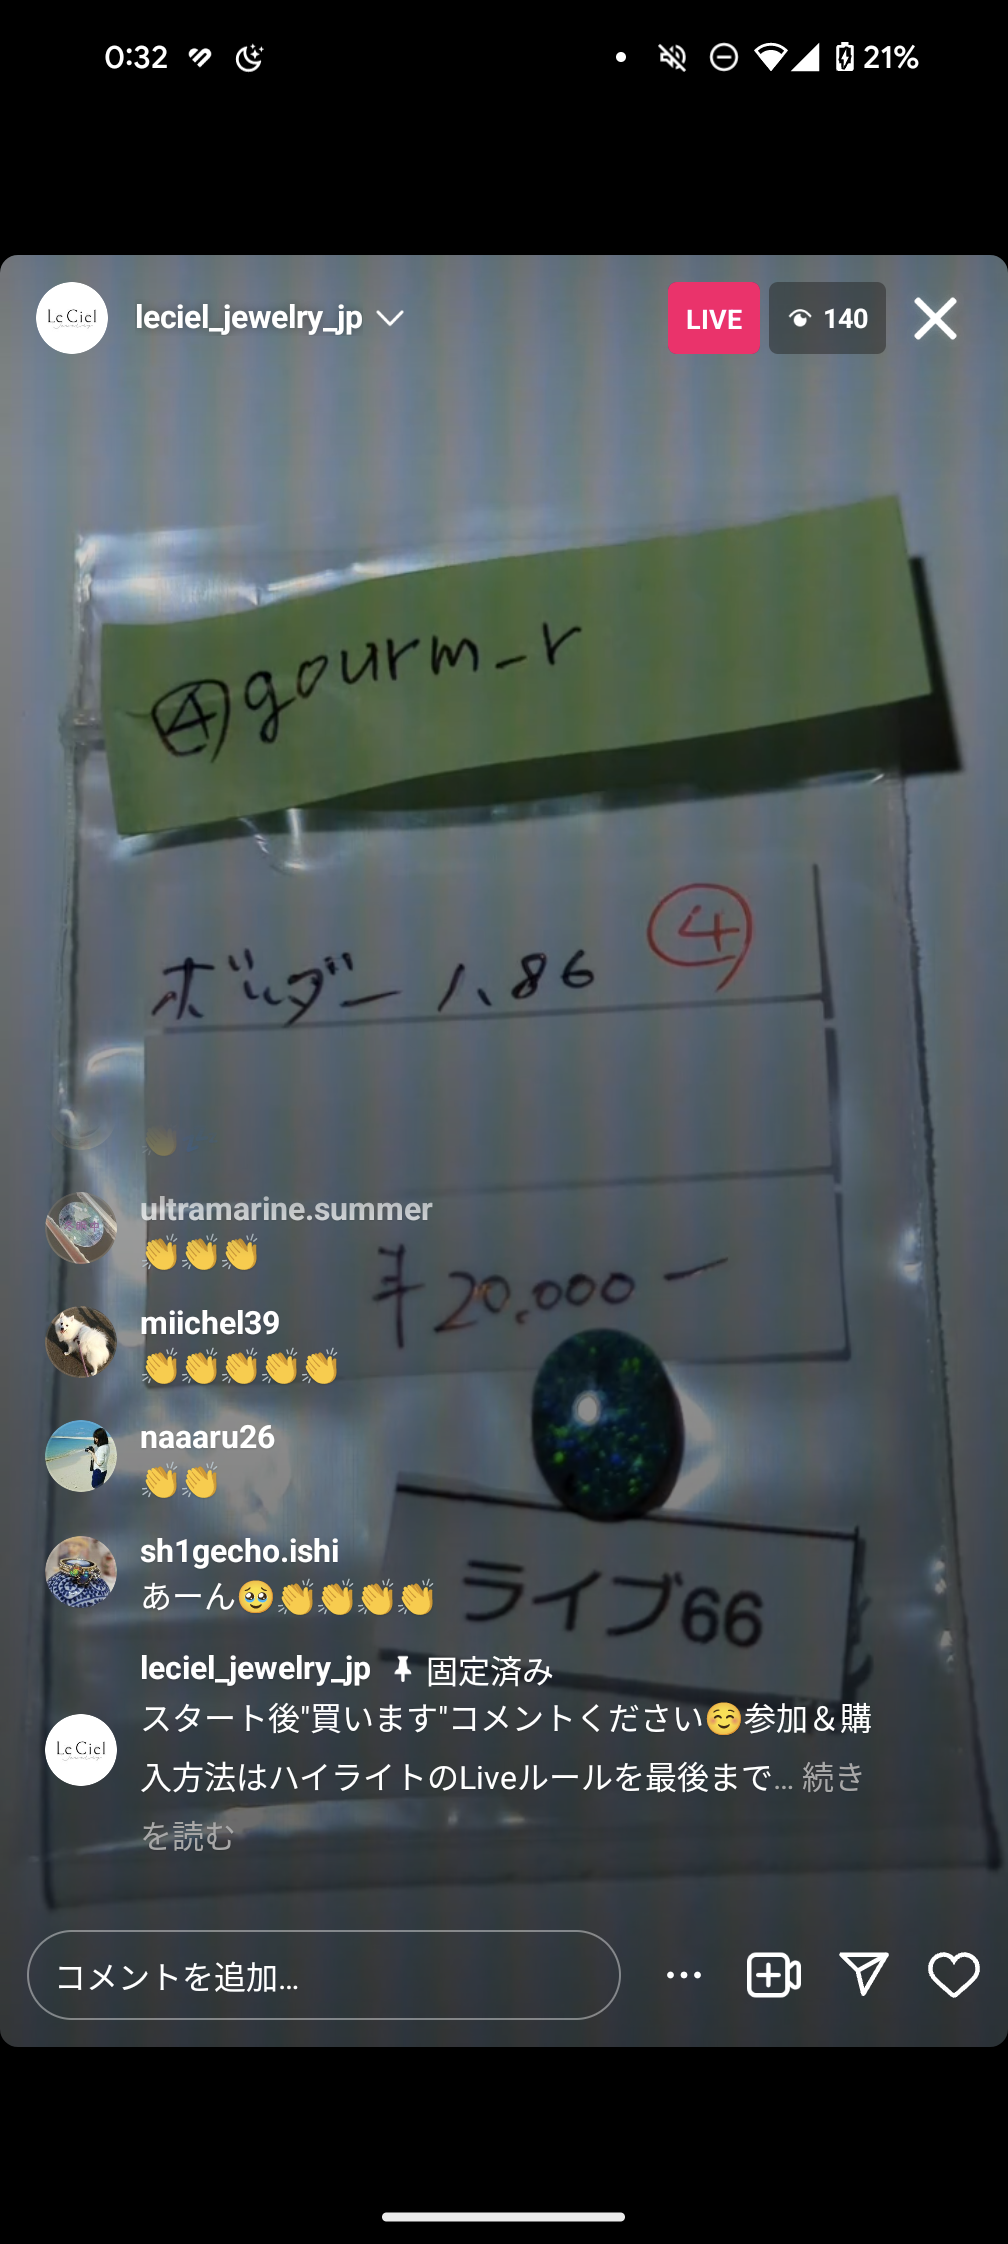 0:32
21%
Le Ciel
leciel_jewelry_jp
LIVE
140
④gourm_r
④
ボルダー 1.86
ultramarine.summer
👏👏👏
¥20,000ー
miichel39
👏👏👏👏👏
naaaru26
👏👏
sh1gecho.ishi
あーん🥹👏👏👏👏
ライブ66
leciel_jewelry_jp 固定済み
スタート後"買います"コメントください☺️参加＆購
入方法はハイライトのLiveルールを最後まで... 続き
を読む
Le Ciel
コメントを追加...